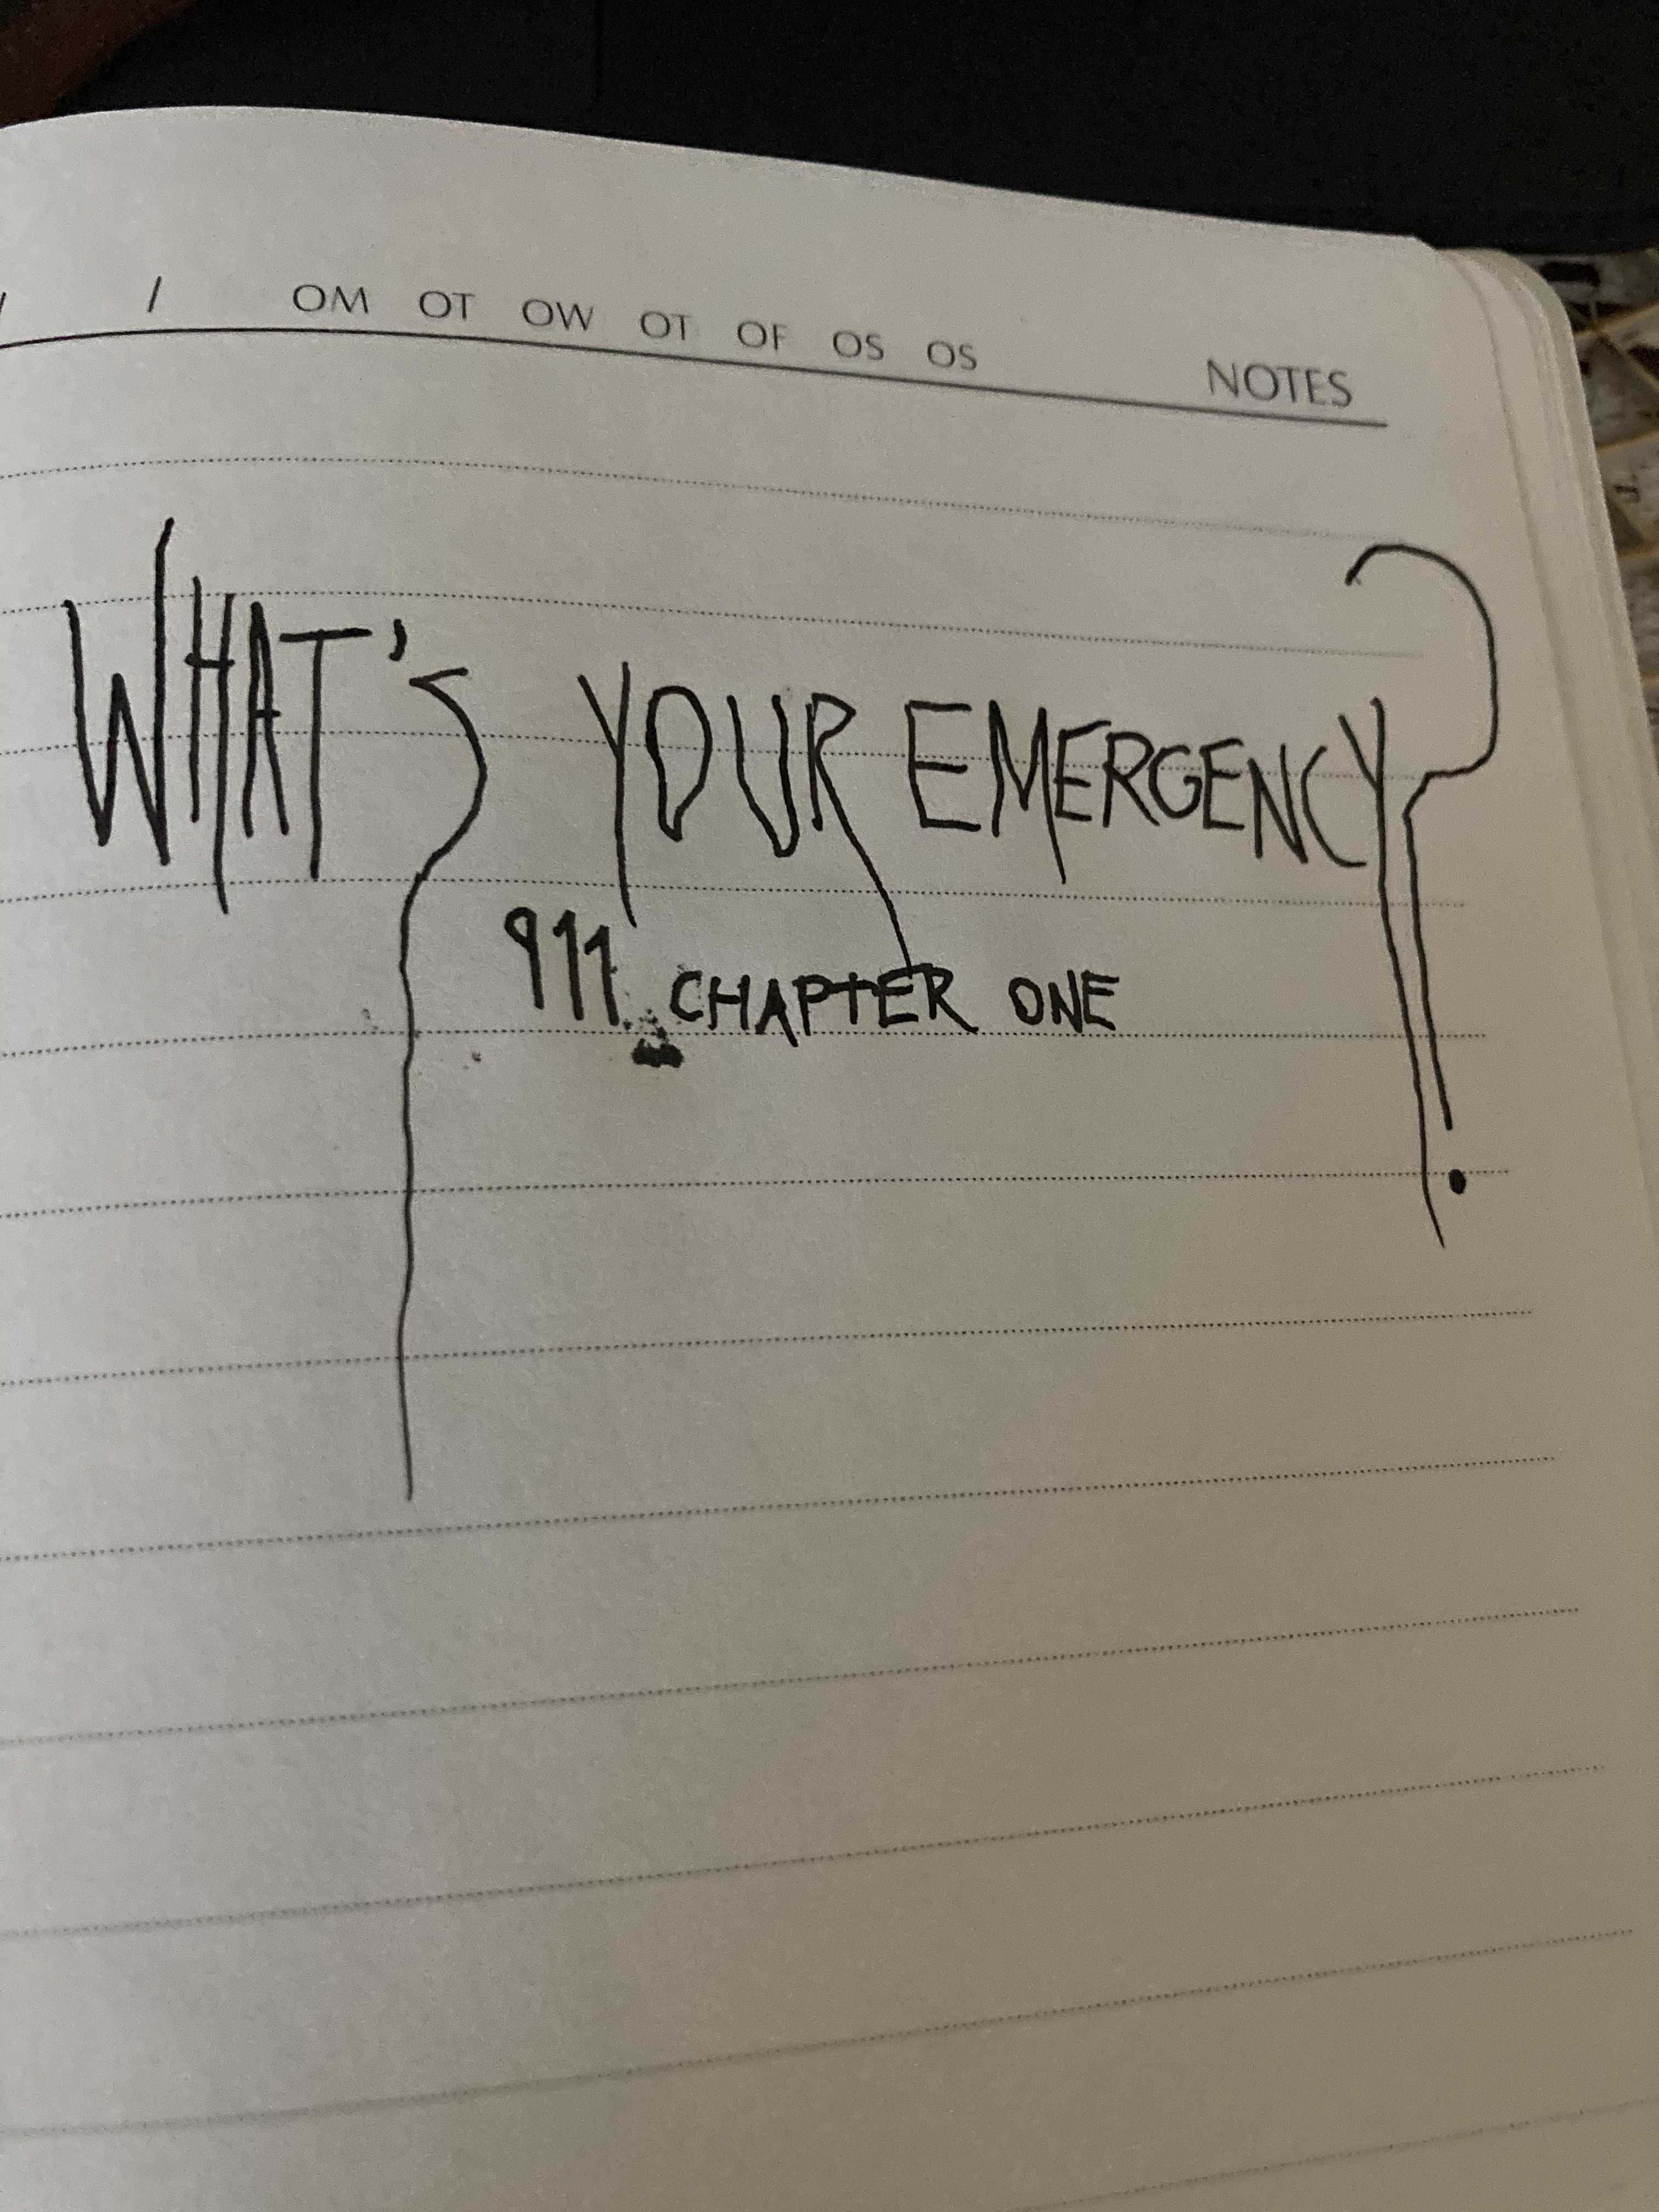 / / OM OT OW OT OF OS OS NOTES
WHAT'S YOUR EMERGENCY?
911 CHAPTER ONE